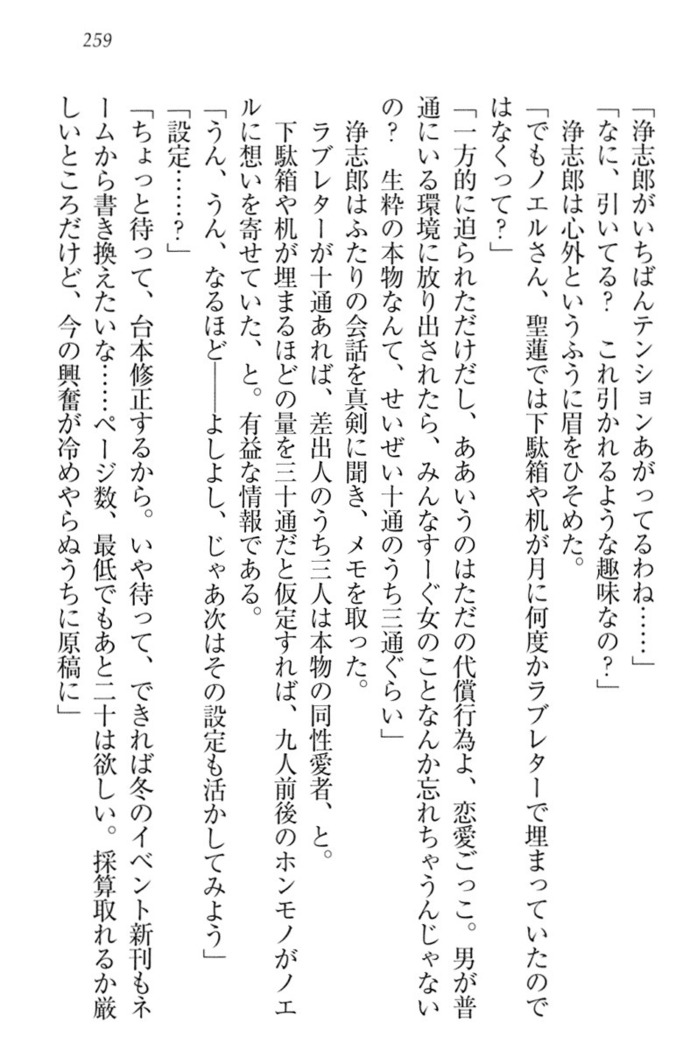 259
「浄志郎がいちばんテンションあがってるわね……」
「なに、引いてる？　これ引かれるような趣味なの？」
　浄志郎は心外というふうに眉をひそめた。
「でもノエルさん、聖蓮では下駄箱や机が月に何度かラブレターで埋まっていたので
はなくって？」
「一方的に迫られただけだし、ああいうのはただの代償行為よ、恋愛ごっこ。男が普
通にいる環境に放り出されたら、みんなすーぐ女のことなんか忘れちゃうんじゃない
の？　生粋の本物なんて、せいぜい十通のうち三通ぐらい」
　浄志郎はふたりの会話を真剣に聞き、メモを取った。
　ラブレターが十通あれば、差出人のうち三人は本物の同性愛者、と。
　下駄箱や机が埋まるほどの量を三十通だと仮定すれば、九人前後のホンモノがノエ
ルに想いを寄せていた、と。有益な情報である。
「うん、うん、なるほど――よしよし、じゃあ次はその設定も活かしてみよう」
「設定……？」
「ちょっと待って、台本修正するから。いや待って、できれば冬のイベント新刊もネ
ームから書き換えたいな……ページ数、最低でもあと二十は欲しい。採算取れるか厳
しいところだけど、今の興奮が冷めやらぬうちに原稿に」